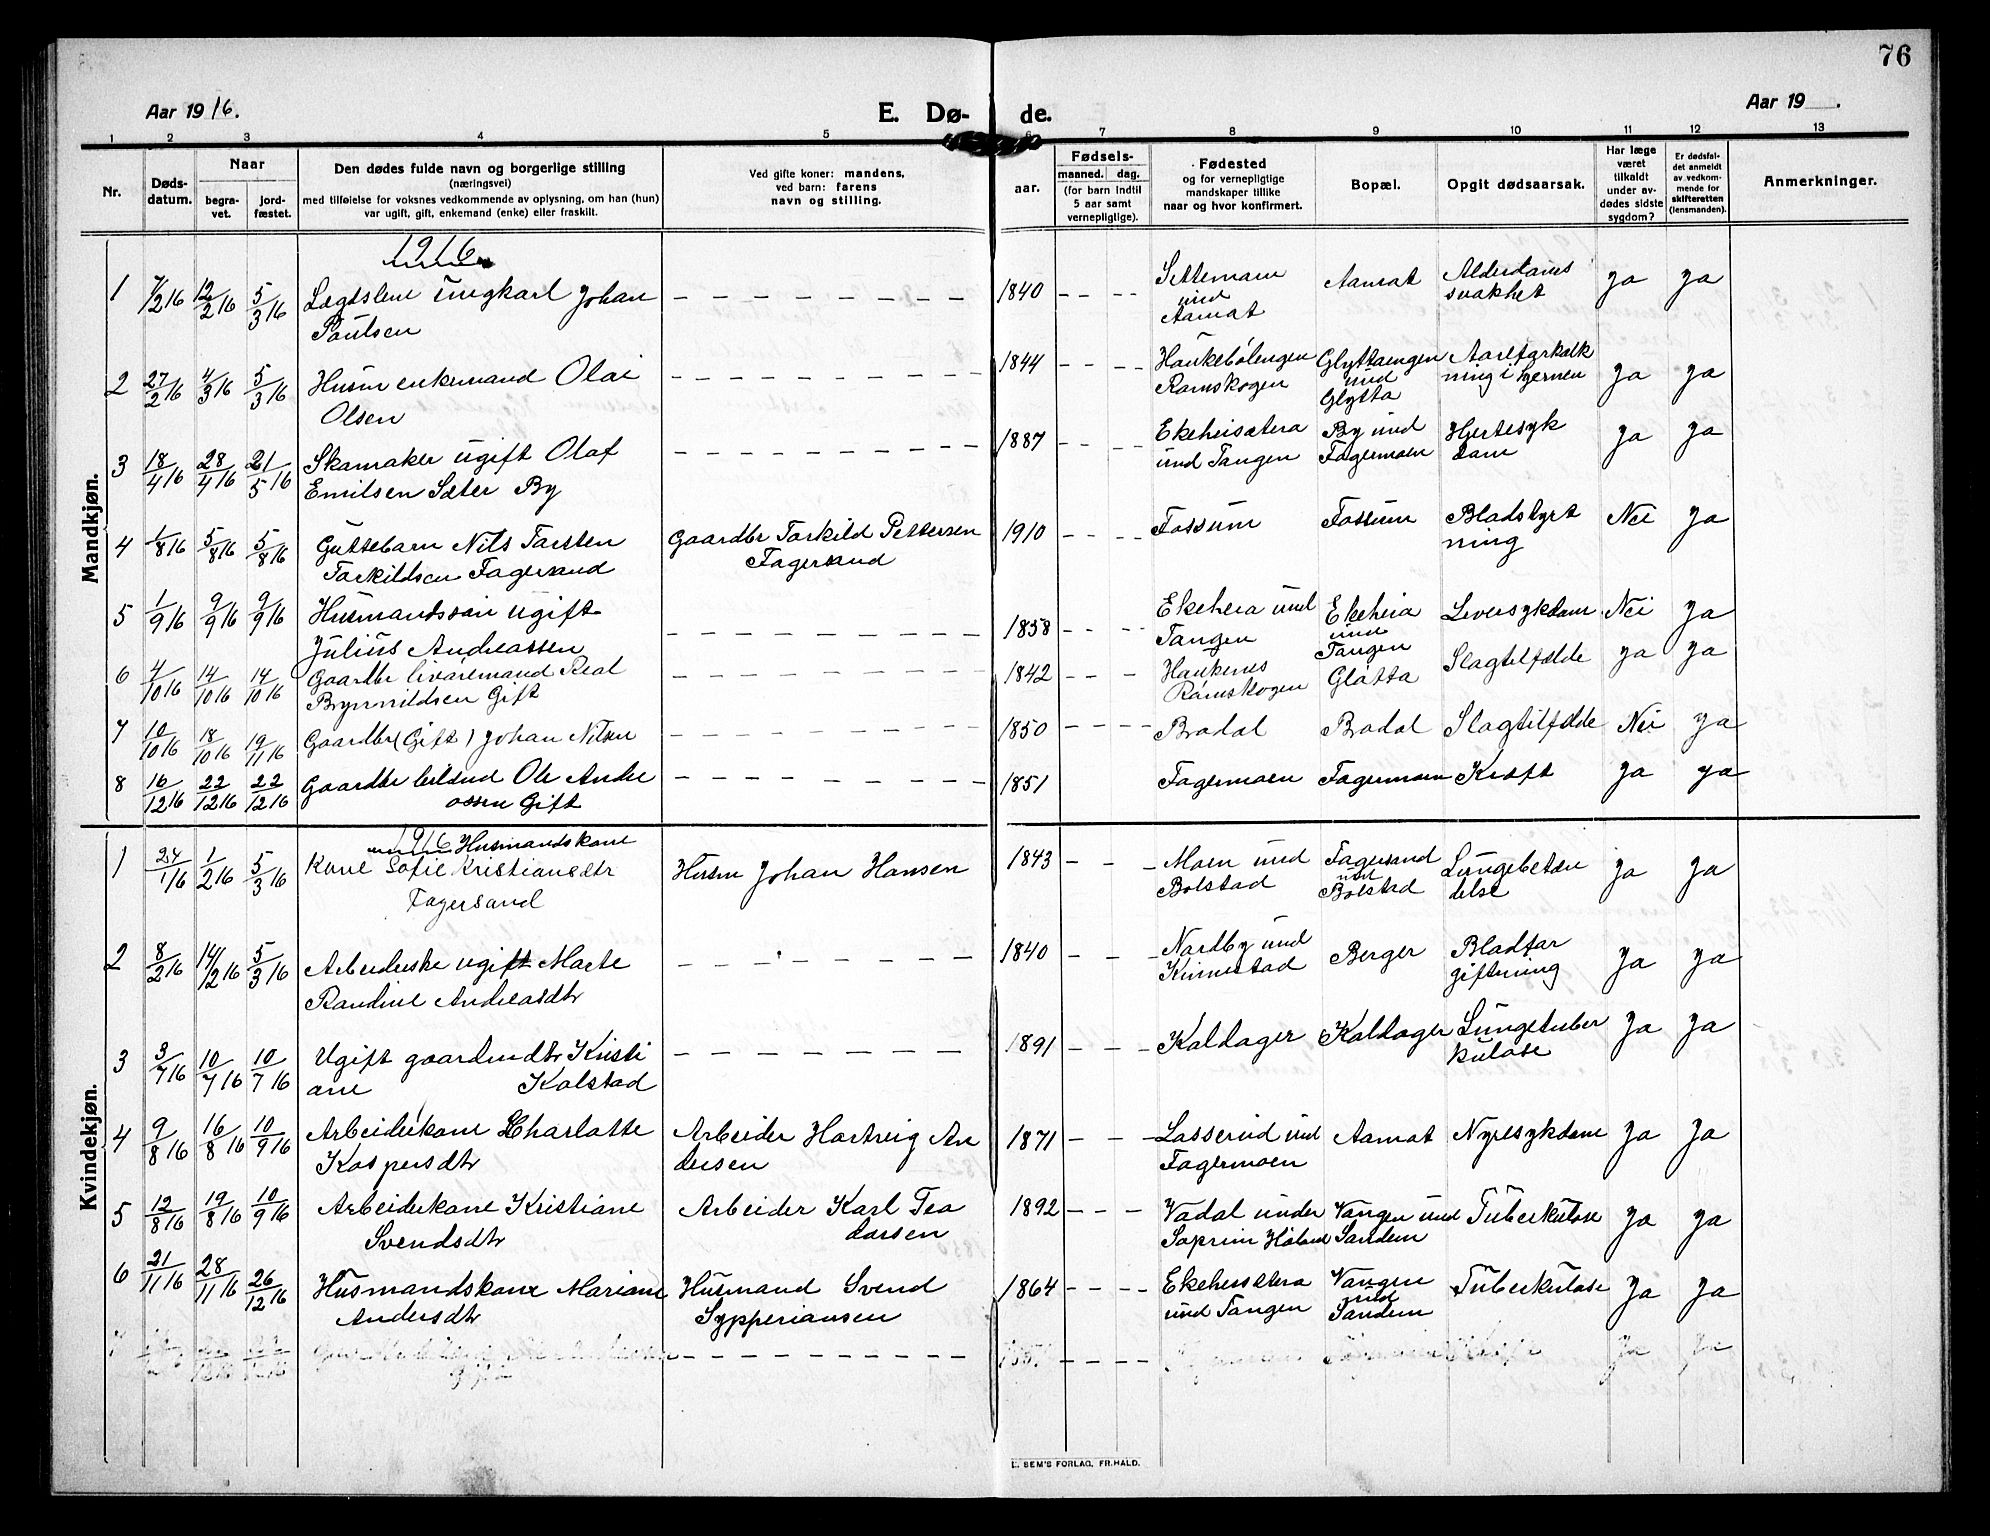 76
Aar 1916.
E. Dø- de.
Aar 19 .
1 2 3 4 5 6 7 8 9 10 11 12 13
Nr.
Døds-
datum.
Naar
begra-
vet.
jord-
fæstet.
Den dødes fulde navn og borgerlige stilling
(næringsvei)
med tilføielse for voksnes vedkommende av oplysning, om han (hun)
var ugift, gift, enkemand (enke) eller fraskilt.
Ved gifte koner: mandens,
ved barn: farens
navn og stilling.
aar.
Fødsels-
maaned. dag.
(for barn indtil
5 aar samt
vernepligtige).
Fødested
og for vernepligtige
mandskaper tillike
naar og hvor konfirmert.
Bopæl.
Opgit dødsaarsak.
Har læge
været
tilkaldt
under av-
dødes sidste
sygdom?
Er dødsfal-
det anmeldt
av vedkom-
mende for
skifteretten
(lensmanden).
Anmerkninger.
Mandkjøn.
1916
1 7/2 16 12/2 16 5/3 16 Lægdslem ungkarl Johan — 1840 Aamot Alderdoms Ja Ja
Poulsen und Aamot svakhet
2 27/2 16 4/3 16 5/3 16 Husm enkemand Olai — 1844 Haukebölengen Glyttaengen Aareforkalk Ja Ja
Olsen Romskogen und Glytta ning i hjernen
3 18/4 16 28/4 16 21/5 16 Skomaker ugift Olaf — 1887 Ekeheisætera By und Hjertesyk Ja Ja
Emilsen Sæter By und Tangen Fagermoen dom
4 1/8 16 5/8 16 5/8 16 Guttebarn Nils Torsten Gaardbr Torkild Pettersen 1910 Fossum Fossum Blodstyrt Nei Ja
Torkildsen Fagersand Fagersand ning
5 1/9 16 9/9 16 9/9 16 Husmandssøn ugift — 1858 Ekeheia und Ekeheia Leversykdom Nei Ja
Julius Andreassen Tangen und Tangen
6 4/10 16 14/10 16 14/10 16 Gaardbr livøremand — 1842 Haukenes Glötta Slagtilfælde Ja Ja
Brynnildsen Gift Römskogen
7 10/10 16 18/10 16 19/11 16 Gaardbr (Gift) Johan Nilsen — 1850 Bradal Bradal Slagtilfælde Nei Ja
8 16/12 16 22/12 16 22/12 16 Gaardbr Ole Andre — 1851 Fagermoen Fagermoen Kræft Ja Ja
assen Gift
Kvindekjøn.
1916 Husmandskone
1 24/1 16 1/2 16 5/3 16 Kone Sofie Kristiansdtr Husm Johan Hansen 1843 Moen und Fagersand Lungebeten Ja Ja
Fagersand Bolstad und Bolstad delse
2 8/2 16 14/2 16 5/3 16 Arbeiderske ugift Marte — 1840 Nordby und Berger Blodfor Ja Ja
Randine Andreasdtr Kinnestad giftning
3 3/7 16 10/7 16 10/7 16 Ugift gaardmdtr Kristi — 1891 Koldager Koldager Lungetuber Ja Ja
ane Kolstad kulose
4 9/8 16 16/8 16 10/9 16 Arbeiderkone Charlotte Arbeider Hartvig An 1871 Lasserud und Aamot Nyresykdom Ja Ja
Kaspersdtr dersen Fagermoen
5 12/8 16 19/8 16 10/9 16 Arbeiderkone Kristiane Arbeider Karl Teo 1892 Vadal under Vangen und Tuberkulose Ja Ja
Svendsdtr dorsen Høland Sandem
6 21/11 16 28/11 16 26/12 16 Husmandskone Mariane Husmand Svend 1864 Ekeheisætera Vangen Tuberkulose Ja Ja
Andersdtr Sypperiansen und Tangen und Sandem
E. SEM'S FORLAG, FR.HALD.